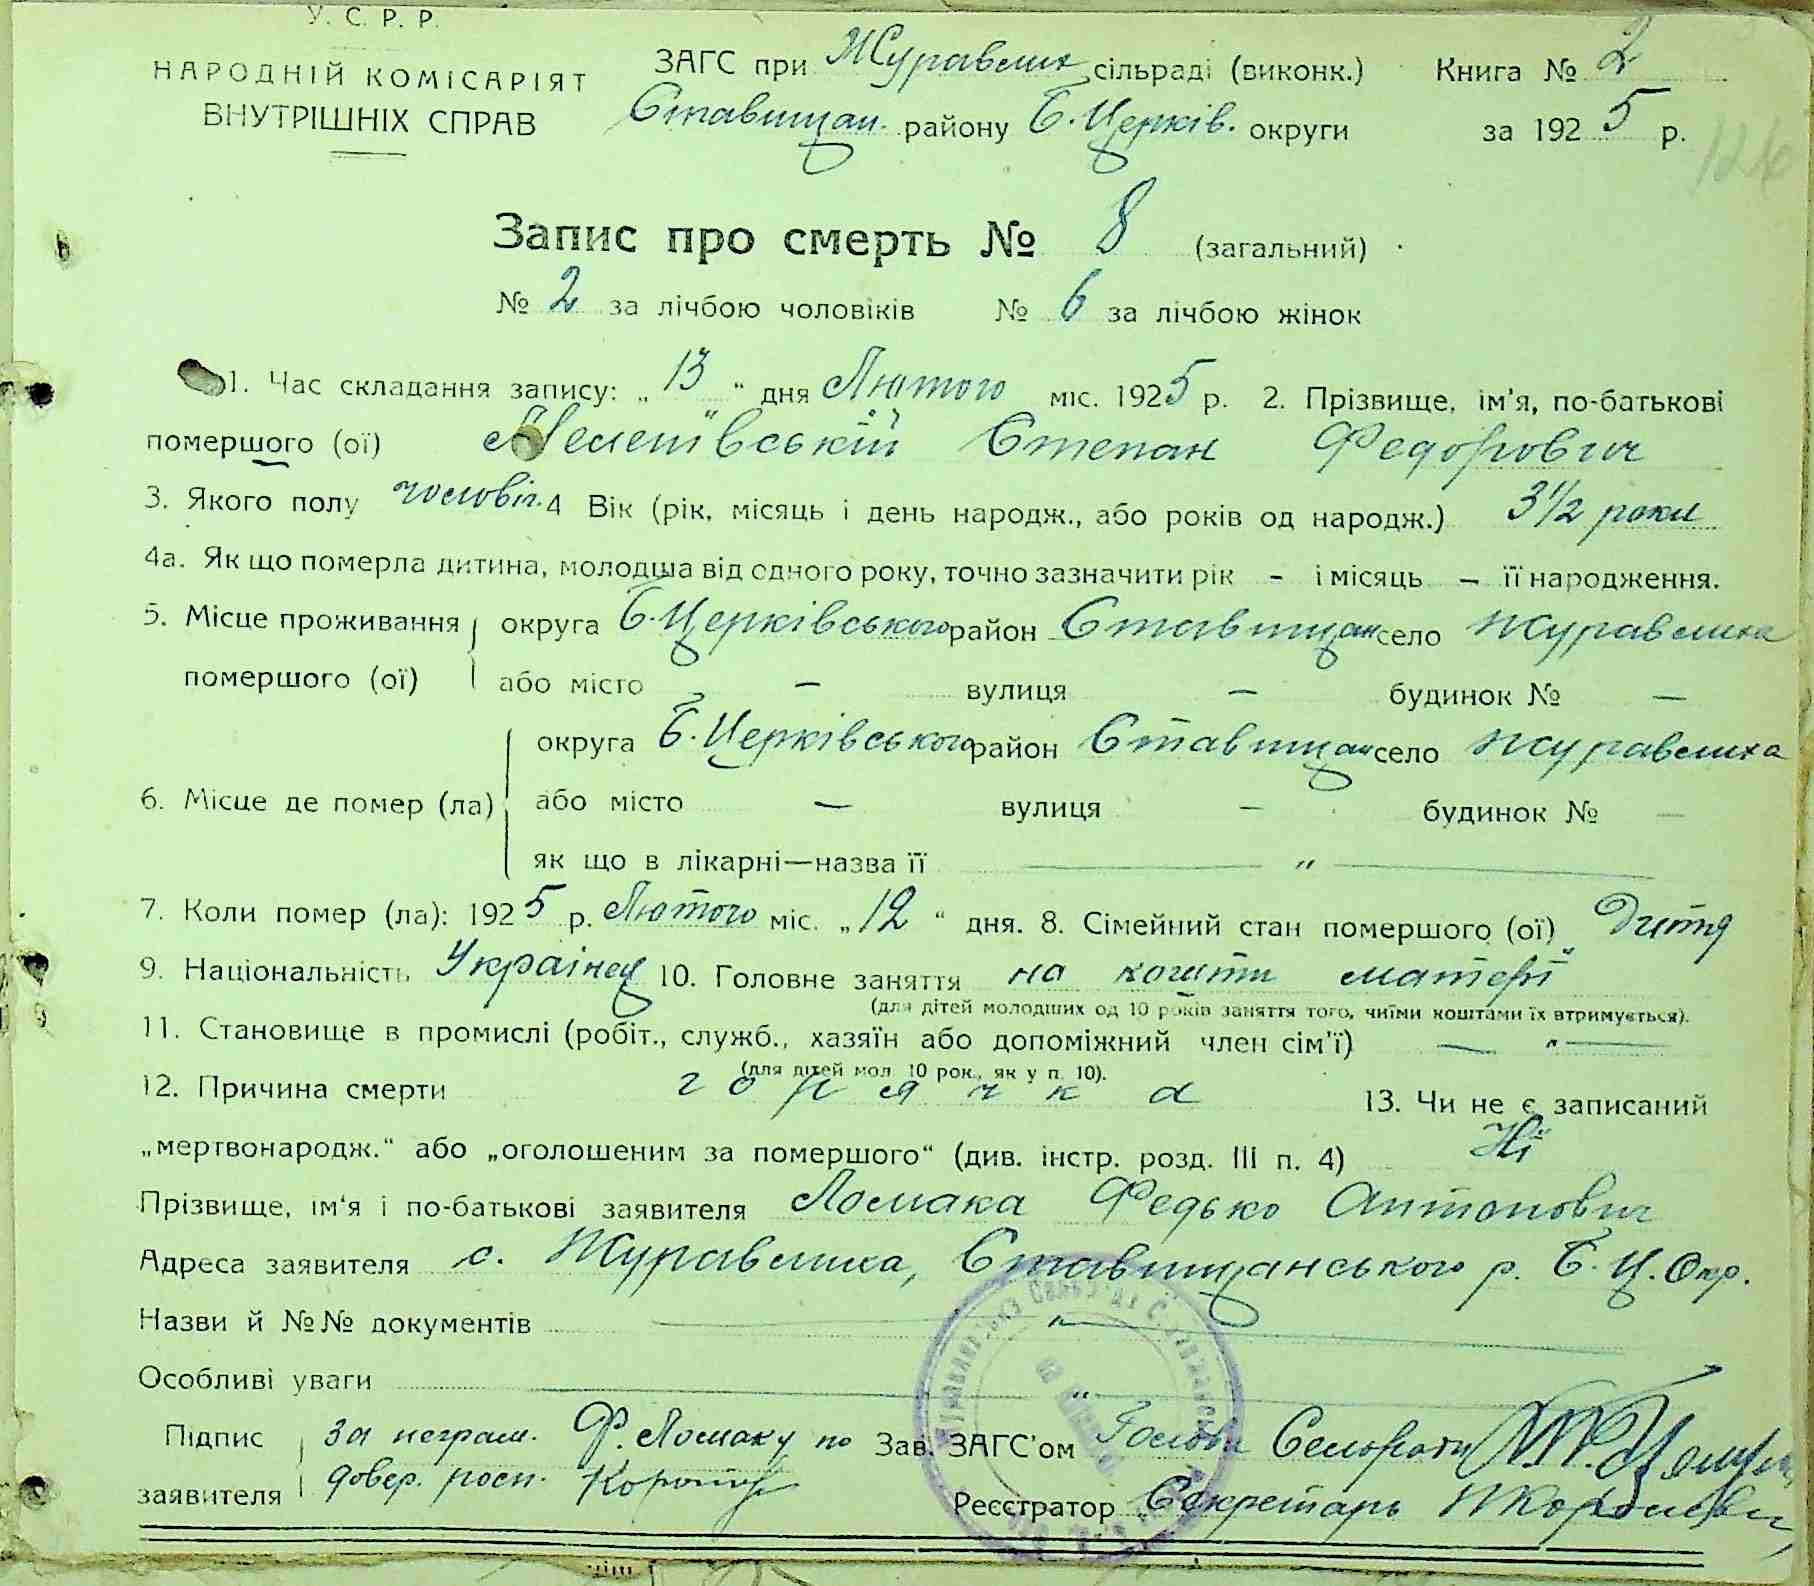 У. С. Р. Р.
НАРОДНІЙ КОМІСАРІЯТ
ВНУТРІШНІХ СПРАВ
ЗАГС при Журавлих сільраді (виконк.) Книга № 2
Ставищан. району Б. Церків. округи за 1925 р.
126
Запис про смерть № 8 (загальний)
№ 2 за лічбою чоловіків № 6 за лічбою жінок
1. Час складання запису: „13“ дня Лютого міс. 1925 р. 2. Прізвище, ім'я, по-батькові
помершого (ої) Степан Федорович
3. Якого полу чоловіч. 4 Вік (рік, місяць і день народж., або років од народж.) 3 1/2 роки
4а. Як що померла дитина, молодша від одного року, точно зазначити рік - і місяць - її народження.
5. Місце проживання округа Б. Церківського район Ставищан село Журавлиха
помершого (ої) або місто — вулиця — будинок № —
округа Б. Церківського район Ставищан село Журавлиха
6. Місце де помер (ла) або місто — вулиця — будинок № —
як що в лікарні—назва її — " —
7. Коли помер (ла): 1925 р. Лютого міс. „12“ дня. 8. Сімейний стан помершого (ої) Дитя
9. Національність Українец 10. Головне заняття на кошти матері
(для дітей молодших од 10 років заняття того, чиїми коштами їх втримується).
11. Становище в промислі (робіт., служб., хазяїн або допоміжний член сім'ї) — " —
(для дітей мол. 10 рок., як у п. 10).
12. Причина смерти горячка 13. Чи не є записаний
„мертвонародж.“ або „оголошеним за помершого“ (див. інстр. розд. III п. 4) Ні
Прізвище, ім'я і по-батькові заявителя Ломака Федько Антонович
Адреса заявителя с. Журавлиха, Ставищанського р. Б. Ц. Окр.
Назви й №№ документів — " —
Особливі уваги — " —
Підпис за неграм. Ф. Ломаку по Зав. ЗАГС'ом Голова Сельради
заявителя довер. росп. Реєстратор Секретарь